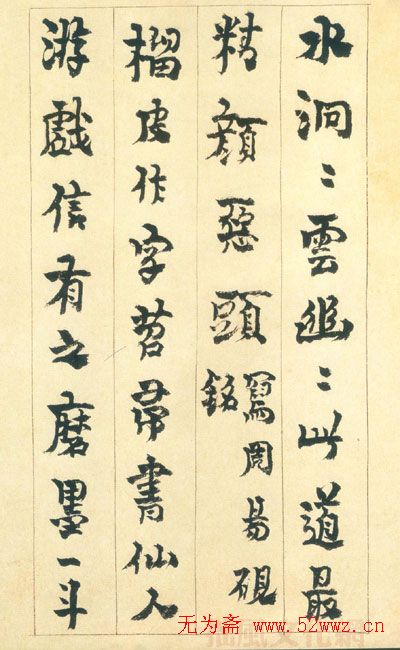 水泂〻雲幽〻此道最
精顔惡頭
寫周易硯
銘
榴皮作字苔帚書仙人
游戲信有之磨墨一斗
无为斋 www.52wwz.cn